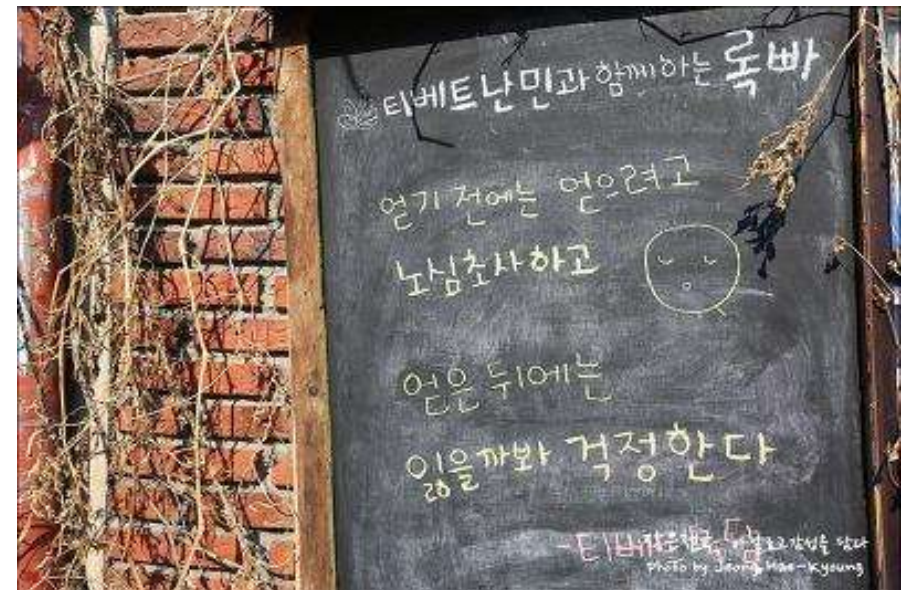 티베트난민과 함께하는 록빠
얻기 전에는 얻으려고
노심초사하고
얻은 뒤에는
잃을까봐 걱정한다
-티베
감성을 담다
Photo by Jeong Hae-Kyoung